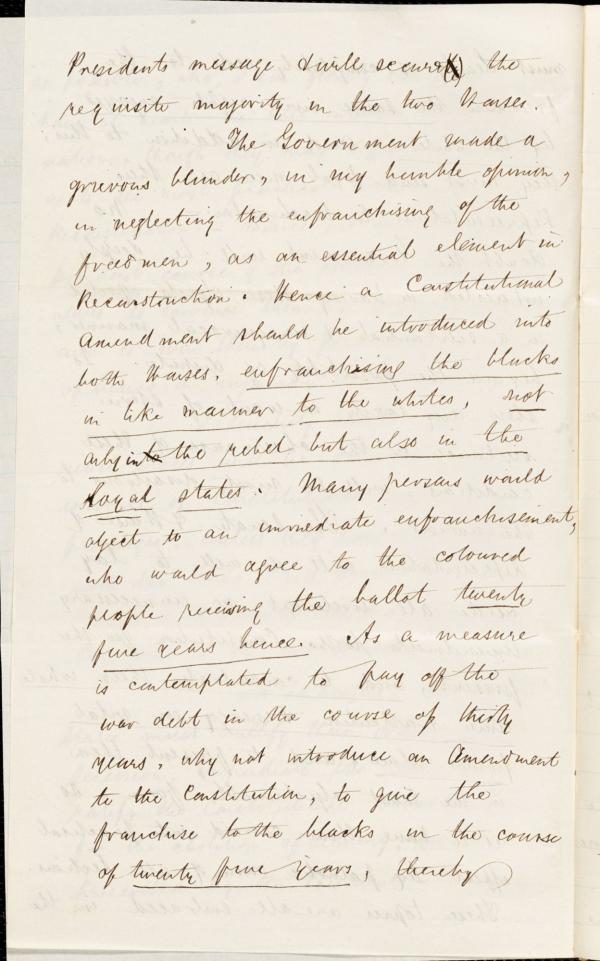 Presidents message & will secure the
requisite majority in the two Houses.
The Government made a
grievous blunder, in my humble opinion,
in neglecting the enfranchising of the
freedmen, as an essential element in
Reconstruction. Hence a Constitutional
Amendment should be introduced into
both Houses, enfranchising the blacks
in like manner to the whites, not
only in the rebel but also in the
loyal states. Many persons would
object to an immediate enfranchisement,
who would agree to the coloured
people receiving the ballot twenty
five years hence. As a measure
is contemplated to pay off the
war debt in the course of thirty
years, why not introduce an Amendment
to the Constitution, to give the
franchise to the blacks in the course
of twenty five years, thereby